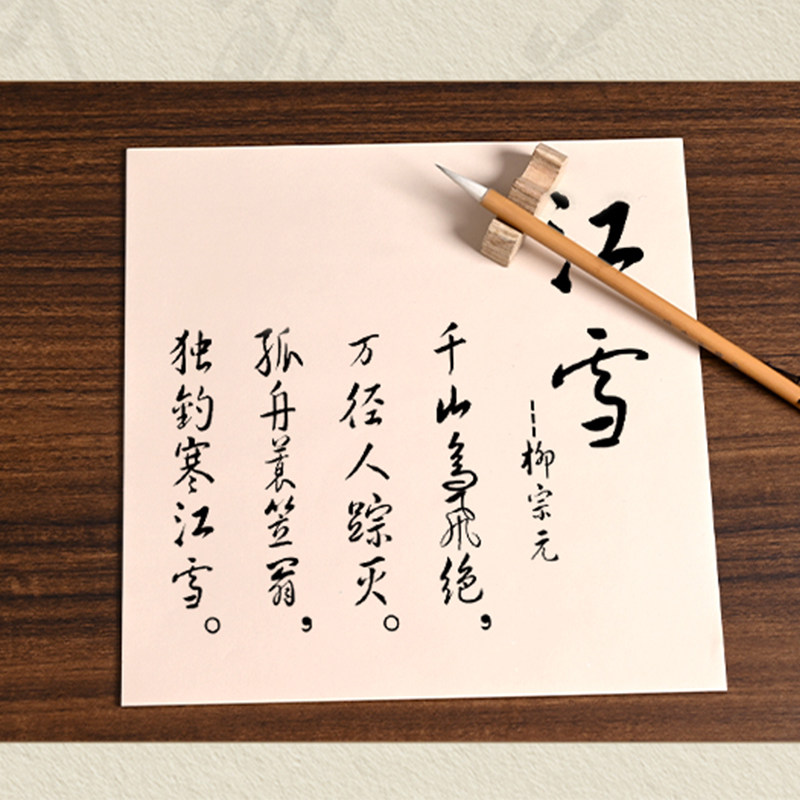 江雪
---柳宗元
千山鸟飞绝，
万径人踪灭。
孤舟蓑笠翁，
独钓寒江雪。